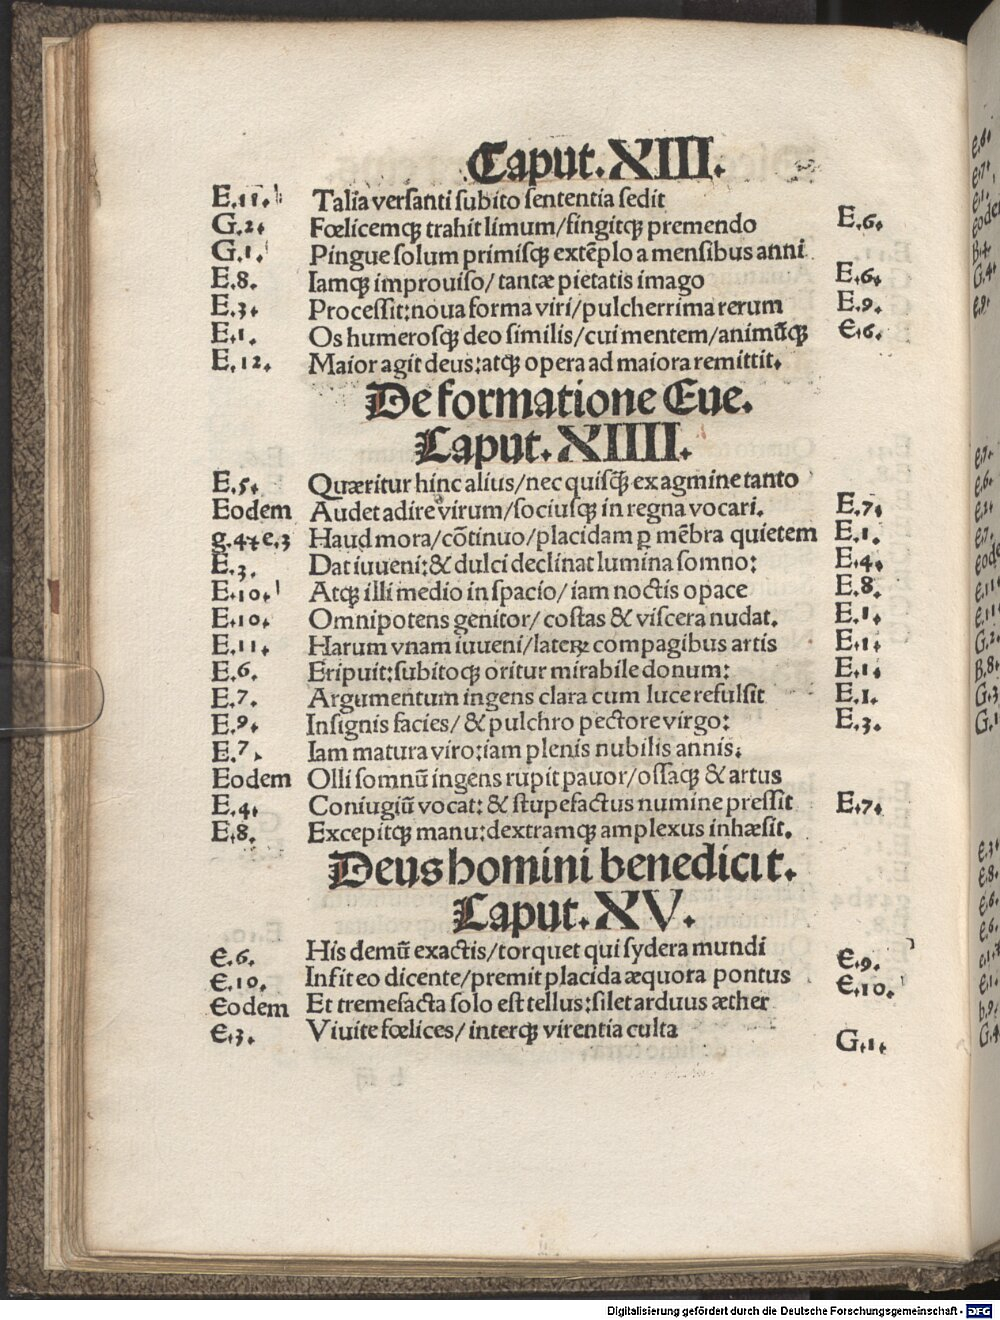 Caput. XIII.
E.11. Talia versanti subito sententia sedit
G.2. Fœlicemqꝫ trahit limum/fingitqꝫ premendo E.6.
G.1. Pingue solum primisqꝫ extẽplo a mensibus anni
E.8. Iamqꝫ improuiso/tantæ pietatis imago E.6.
E.3. Processit:noua forma viri/pulcherrima rerum E.9.
E.1. Os humerosqꝫ deo similis/cui mentem/animũqꝫ E.6.
E.12. Maior agit deus:atqꝫ opera ad maiora remittit.
De formatione Eue.
Caput. XIIII.
E.5. Quæritur hinc alius/nec quisqꝫ̃ ex agmine tanto
Eodem Audet adire virum/sociusqꝫ in regna vocari. E.7.
g.4⁊e.3 Haud mora/cõtinuo/placidam ꝑ mẽbra quietem E.1.
E.3. Dat iuueni:& dulci declinat lumina somno: E.4.
E.10. Atqꝫ illi medio in spacio/iam noctis opace E.8.
E.10. Omnipotens genitor/costas & viscera nudat. E.1.
E.11. Harum vnam iuueni/lateꝝ compagibus artis E.1.
E.6. Eripuit:subitoqꝫ oritur mirabile donum: E.1.
E.7. Argumentum ingens clara cum luce refulsit E.1.
E.9. Insignis facies/& pulchro pectore virgo: E.3.
E.7. Iam matura viro:iam plenis nubilis annis.
Eodem Olli somnũ ingens rupit pauor/ossaqꝫ & artus
E.4. Coniugiũ vocat:& stupefactus numine pressit E.7.
E.8. Excepitqꝫ manu:dextramqꝫ amplexus inhæsit.
Deus homini benedicit.
Caput. XV.
E.6. His demũ exactis/torquet qui sydera mundi E.9.
E.10. Infit eo dicente/premit placida æquora pontus E.10.
Eodem Et tremefacta solo est tellus:silet arduus æther
E.3. Viuite fœlices/interqꝫ virentia culta G.1.
Digitalisierung gefördert durch die Deutsche Forschungsgemeinschaft - DFG